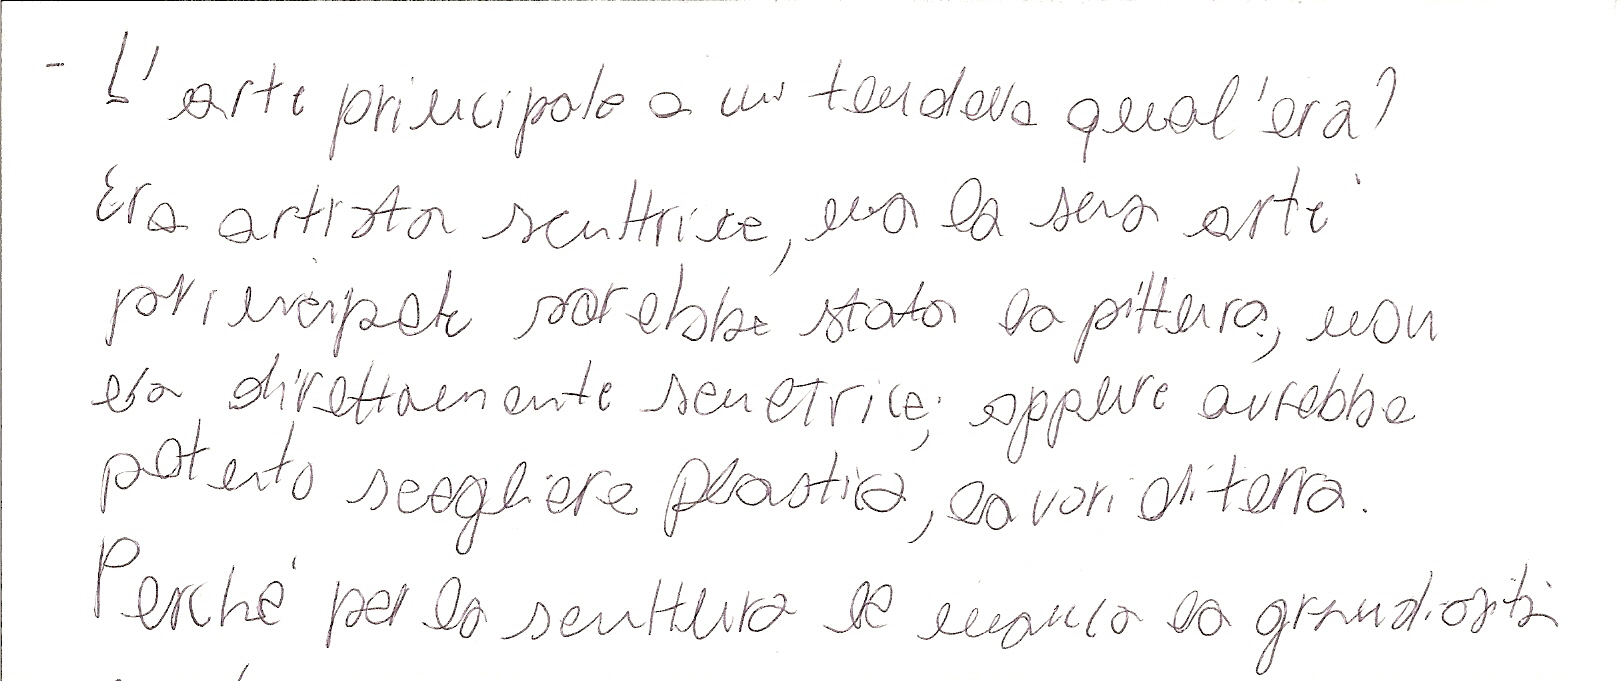 - L'arte principale a cui tendeva qual'era?
Era artista scultrice, ma la sua arte
principale sarebbe stata la pittura, non
era direttamente scultrice; oppure avrebbe
potuto scegliere plastica, lavori di terra.
Perché per la scultura le manca la grandiosità